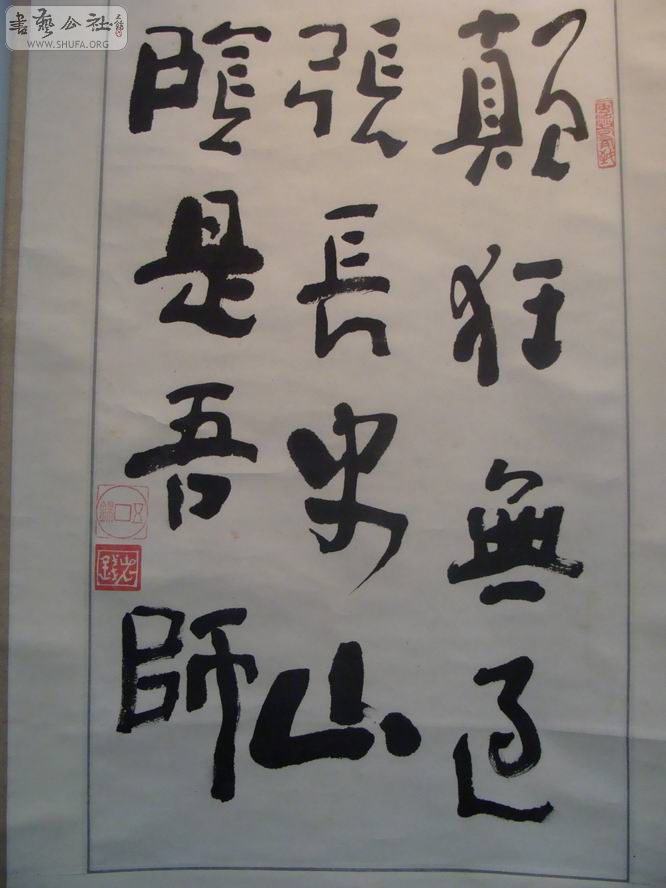 顛狂無過
張長史山
陰是吾師
書藝公社
WWW.SHUFA.ORG